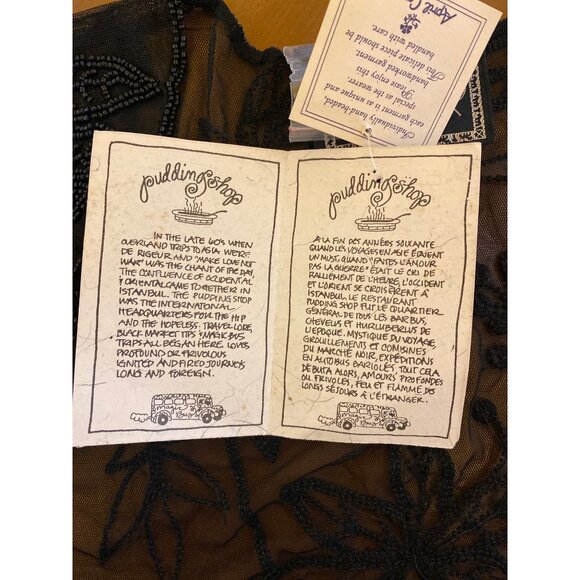 April
Individually hand beaded,
each garment is as unique and
special as the wearer.
Please enjoy this
handworked garment.
This delicate piece should be
handled with care.
puddingshop
IN THE LATE 60'S WHEN
OVERLAND TRIPS TO ASIA WERE
DE RIGEUR, AND "MAKE LOVE NOT
WAR" WAS THE CHANT OF THE DAY,
THE CONFLUENCE OF OCCIDENTAL
& ORIENTAL CAME TOGETHER IN
ISTANBUL. THE PUDDING SHOP
WAS THE INTERNATIONAL
HEADQUARTERS FOR THE HIP
AND THE HOPELESS. TRAVEL LORE,
BLACK MARKET TIPS & MAGIC BUS
TRIPS ALL BEGAN HERE. LOVES
PROFOUND OR FRIVOLOUS
IGNITED AND FIRED JOURNEYS
LONG AND FOREIGN.
magic bus
puddingshop
À LA FIN DES ANNÉES SOIXANTE
QUAND LES VOYAGES EN ASIE ÉTAIENT
UN MUST, QUAND "FAITES L'AMOUR
PAS LA GUERRE" ÉTAIT LE CRI DE
RALLIEMENT DE L'HEURE, L'OCCIDENT
ET L'ORIENT SE CROISÈRENT À
ISTANBUL. LE RESTAURANT
PUDDING SHOP FUT LE QUARTIER
GÉNÉRAL DE TOUS LES BARBUS,
CHEVELUS ET HURLUBERLUS DE
L'EPOQUE. MYSTIQUE DU VOYAGE,
GROUILLEMENTS ET COMBINES
DU MARCHÉ NOIR, EXPÉDITIONS
EN AUTOBUS BARIOLÉS, TOUT CELA
DEBUTA ALORS, AMOURS PROFONDES
OU FRIVOLES, FEU ET FLAMME DES
LONGS SÉJOURS À L'ÉTRANGER.
magic bus